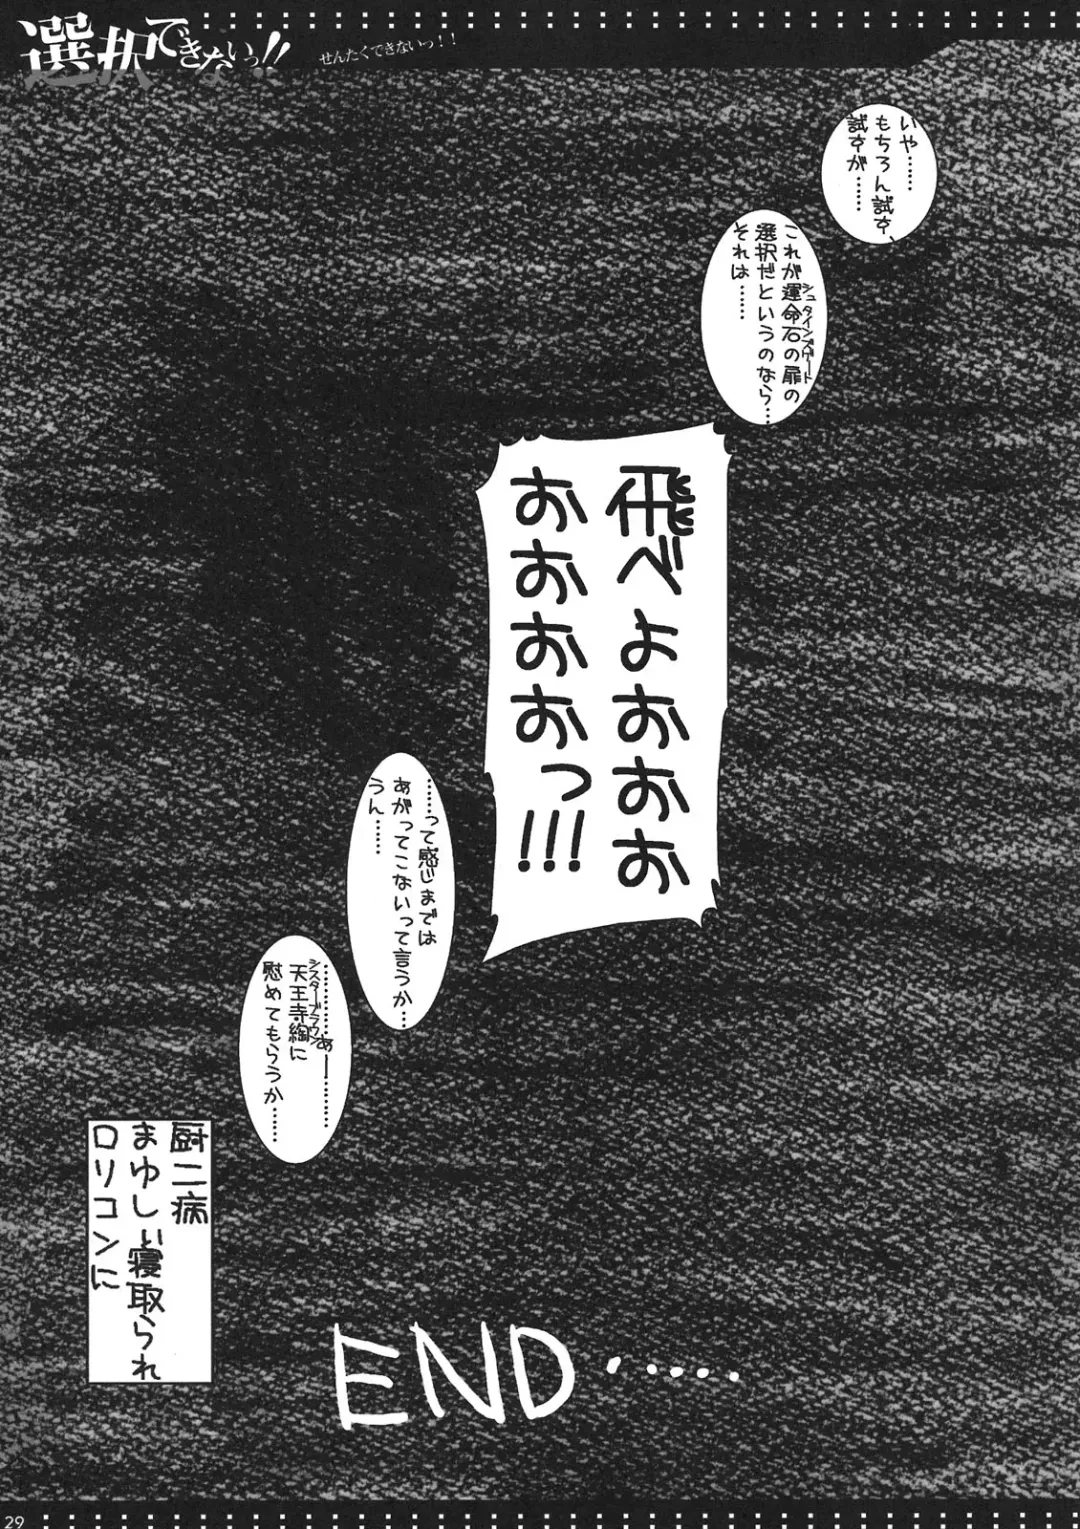 選択できないっ!!
せんたくできないっ!!
いや……
もちろん試す、
試すが……
これが運命石の扉の
シュタインズゲート
選択だというのなら…
それは……
飛べよおおお
おおおおっ!!!
……って感じまでは
あがってこないって言うか…
うん……
…………あー…………
天王寺綯に
シスターブラウン
慰めてもらうか……
厨二病
まゆしぃ寝取られ
ロリコンに
END……
29